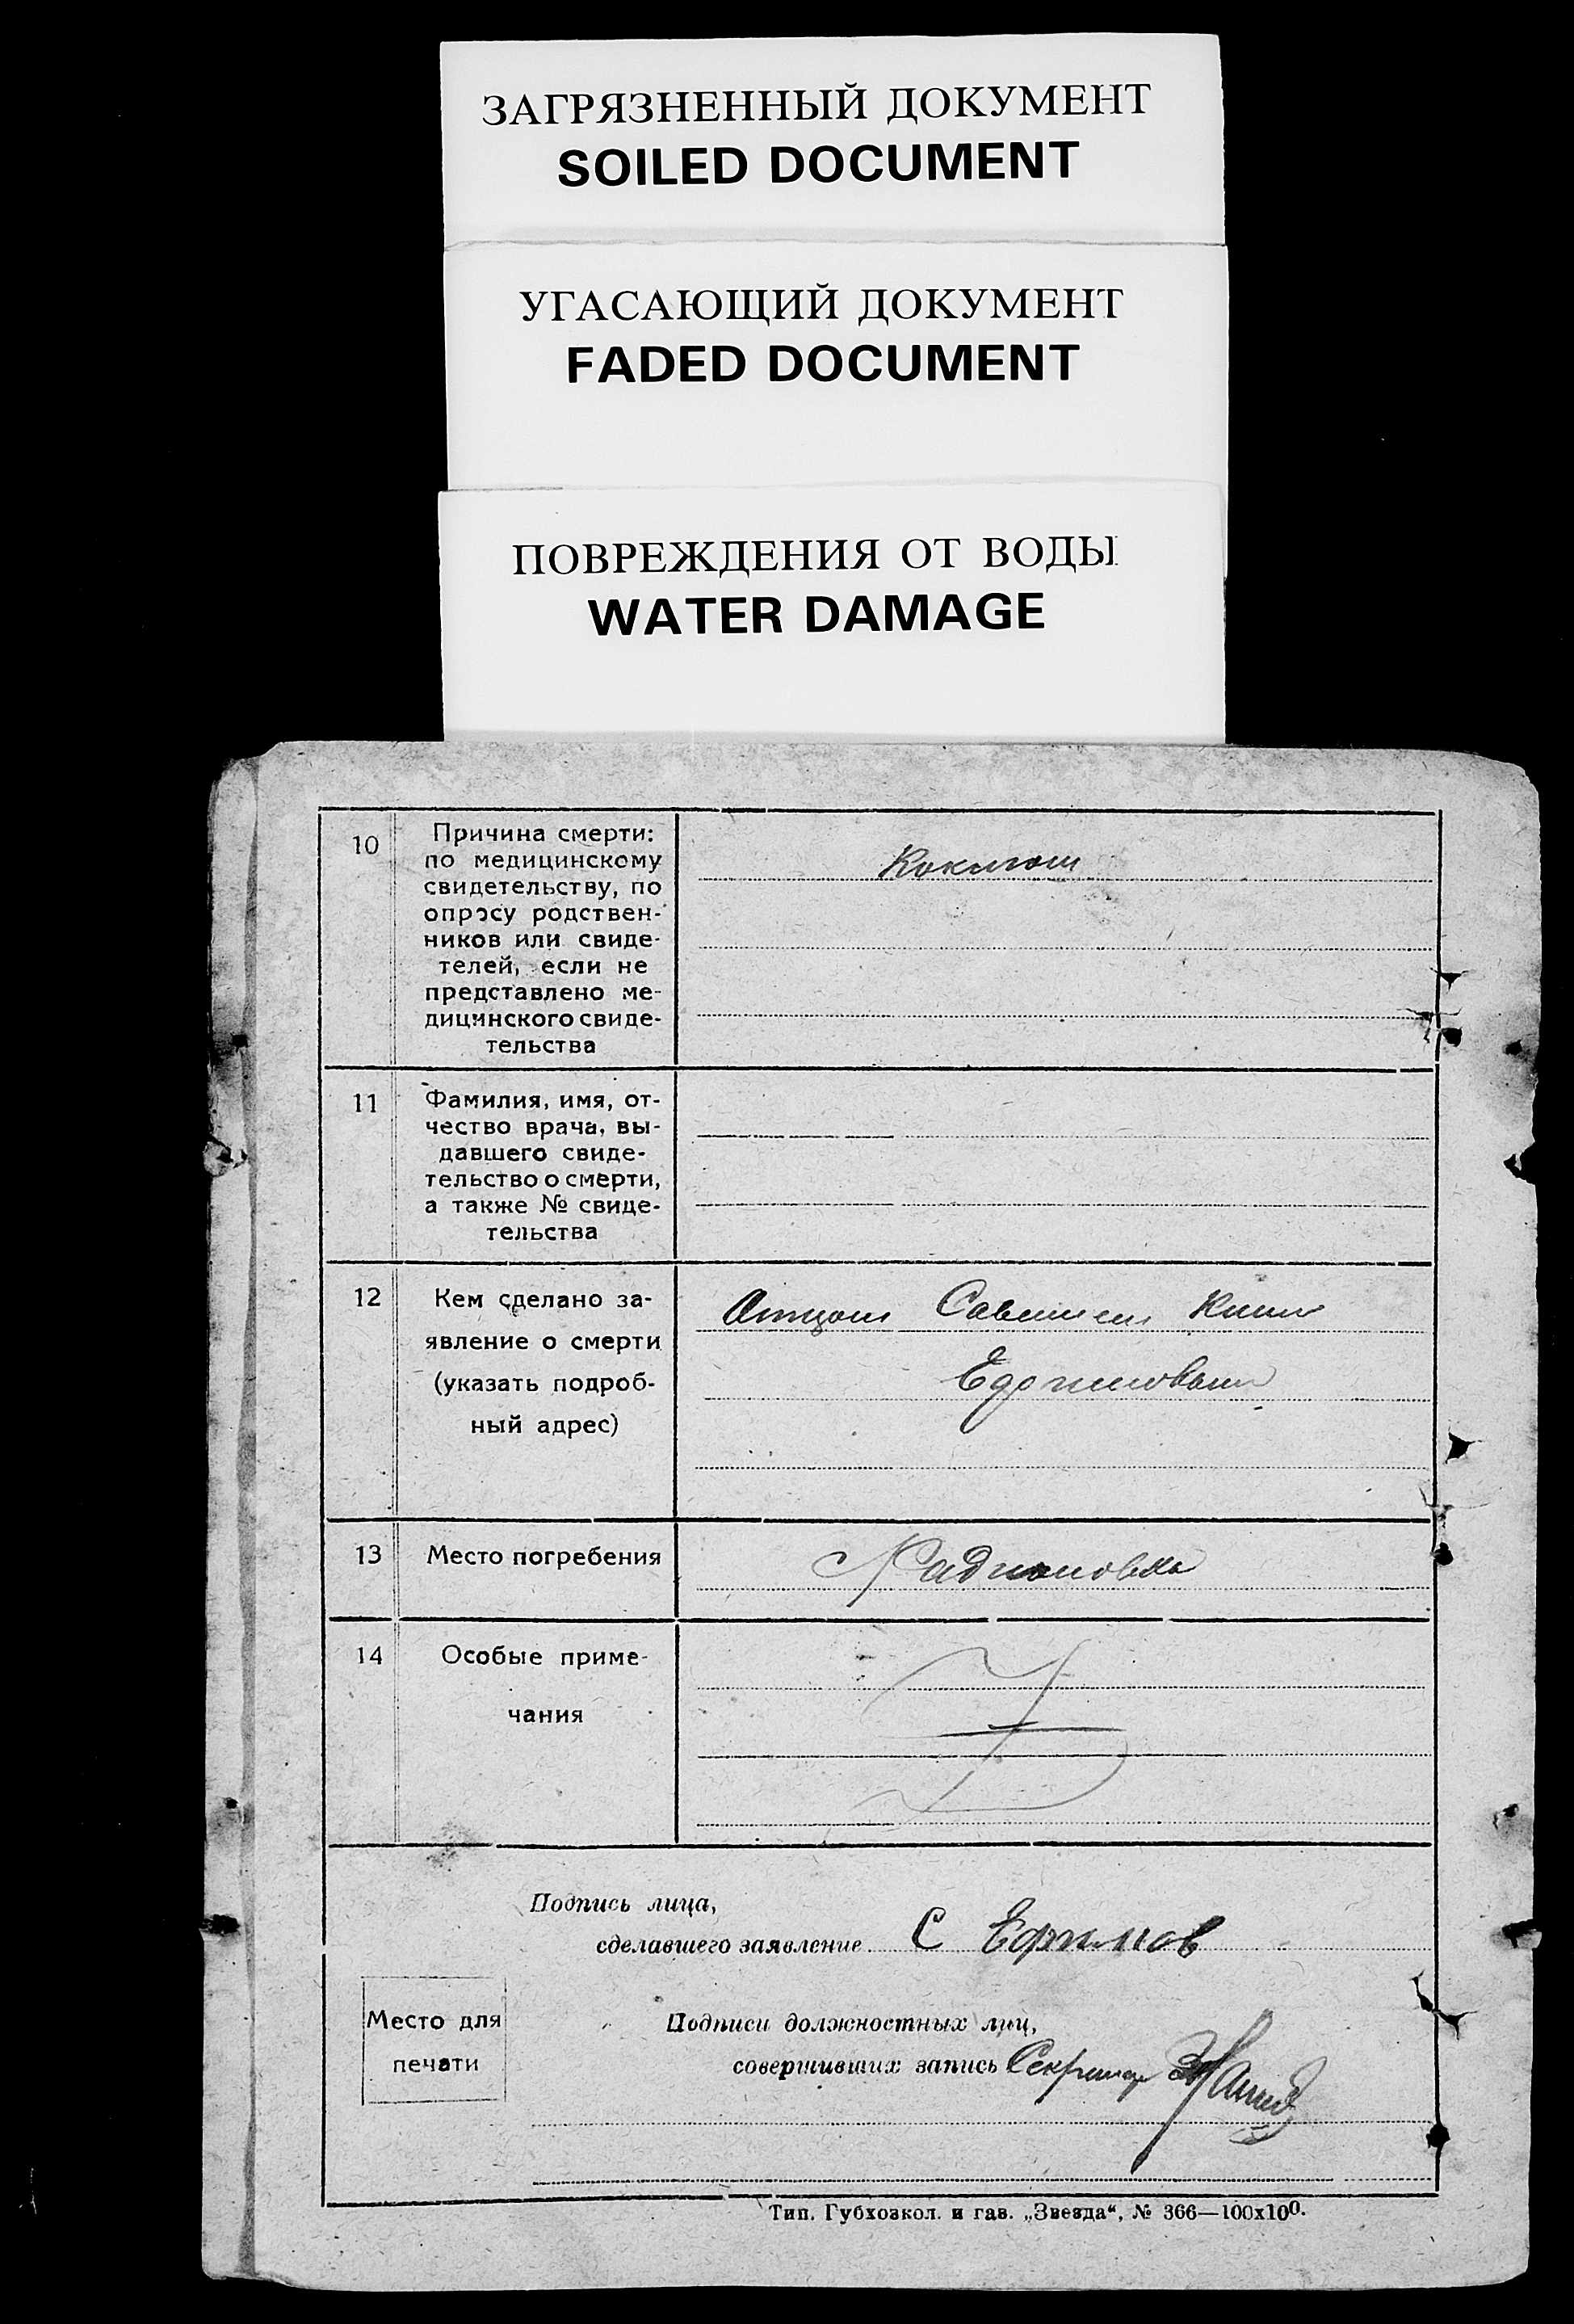 ЗАГРЯЗНЕННЫЙ ДОКУМЕНТ
SOILED DOCUMENT
УГАСАЮЩИЙ ДОКУМЕНТ
FADED DOCUMENT
ПОВРЕЖДЕНИЯ ОТ ВОДЫ
WATER DAMAGE
10
Причина смерти:
по медицинскому
свидетельству, по
опросу родствен-
ников или свиде-
телей, если не
представлено ме-
дицинского свиде-
тельства
Коклюш
11
Фамилия, имя, от-
чество врача, вы-
давшего свиде-
тельство о смерти,
а также № свиде-
тельства
12
Кем сделано за-
явление о смерти
(указать подроб-
ный адрес)
Отцом Савелием
13
Место погребения
Радионовка
14
Особые приме-
чания
Подпись лица,
сделавшего заявление С Ефимов
Место для
печати
Подписи должностных лиц,
совершивших запись Секретарь
Тип. Губхозкол. и газ. „Звезда“, № 366—100х100.